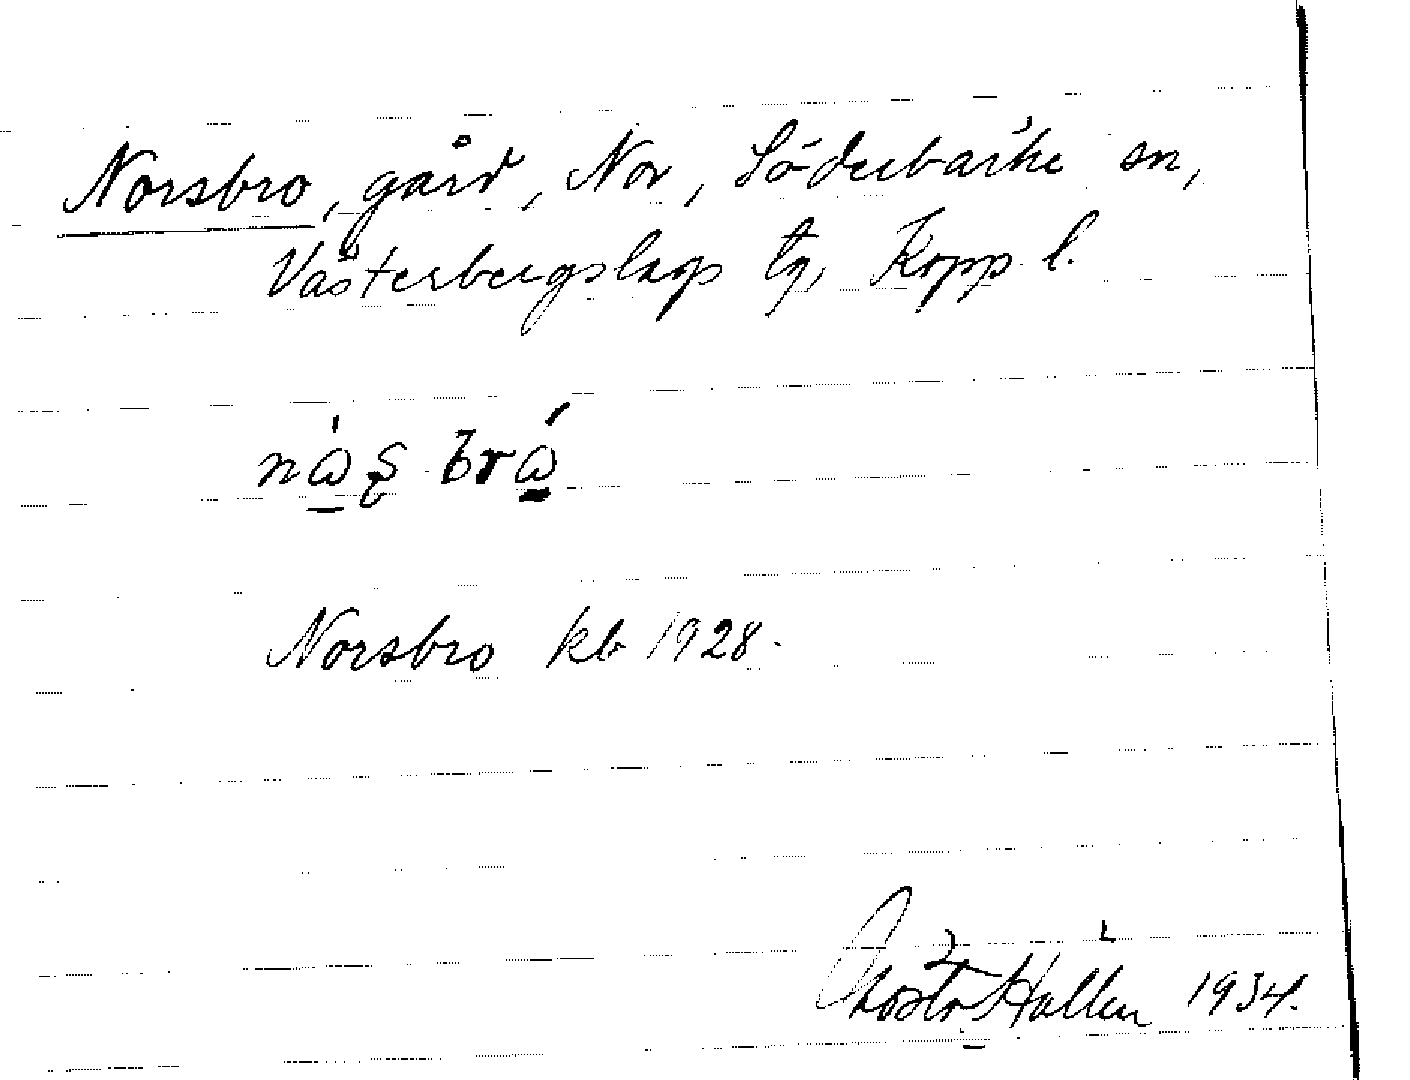 Norsbro, gård, Nor, Söderbärke sn,
Västerbergslags tg, Kopp. l.
Norsbro kb 1928.
Gösta Hallén 1934.